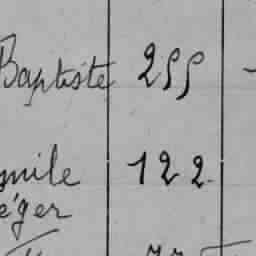 Baptiste 255
mile 122
éger